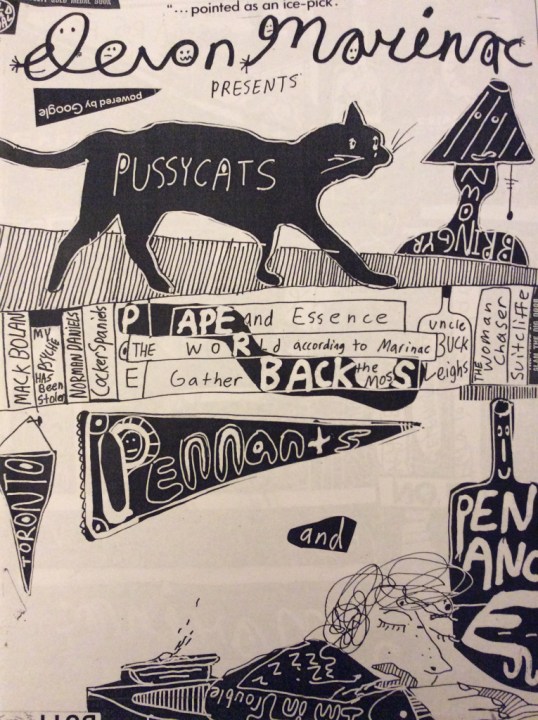 "... pointed as an ice-pick."
Devon Marinac
PRESENTS
powered by Google
PUSSYCATS
MACK BOLAN
MY PSYCHE HAS BEEN Stolen
NORMAN DANIELS
Cocker Spaniels
P APE and Essence
THE WORLd according to Marinac
E Gather BACK the MOSS
uncle BUCK Leighs
THE Woman Chaser
Suitcliffe
Pennants
TORONTO
and
PEN
ANC
ZZZ
I'm in trouble